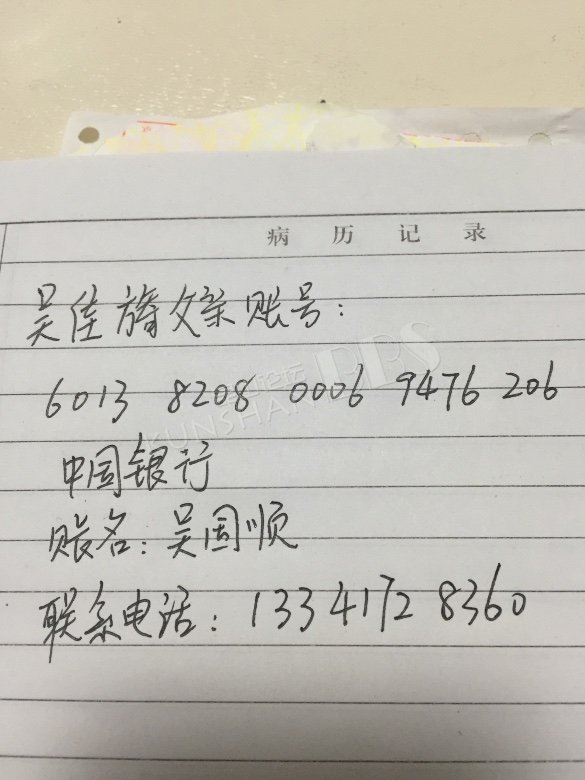 病历记录
吴佳旖父亲账号:
6013 8208 0006 9476 206
中国银行
账名:吴国顺
联系电话:133 4172 8360
KUNSHAN
PPS